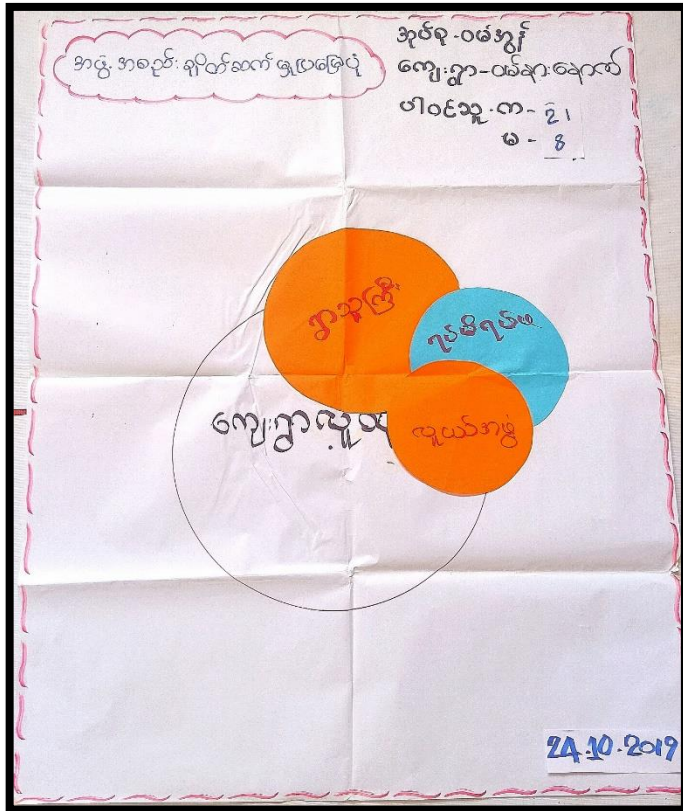 အဖွဲ့အစည်း ချိတ်ဆက် မှုပြမြေပုံ
အုပ်စု - ဝမ်အွန်
ကျေးရွာ - ဝမ်နားနောက်
ပါဝင်သူ - က - 21
မ - 8
ရွာသူကြီး
ရပ်မိရပ်ဖ
ကျေးရွာလူထု
လူငယ်အဖွဲ့
24.10.2019